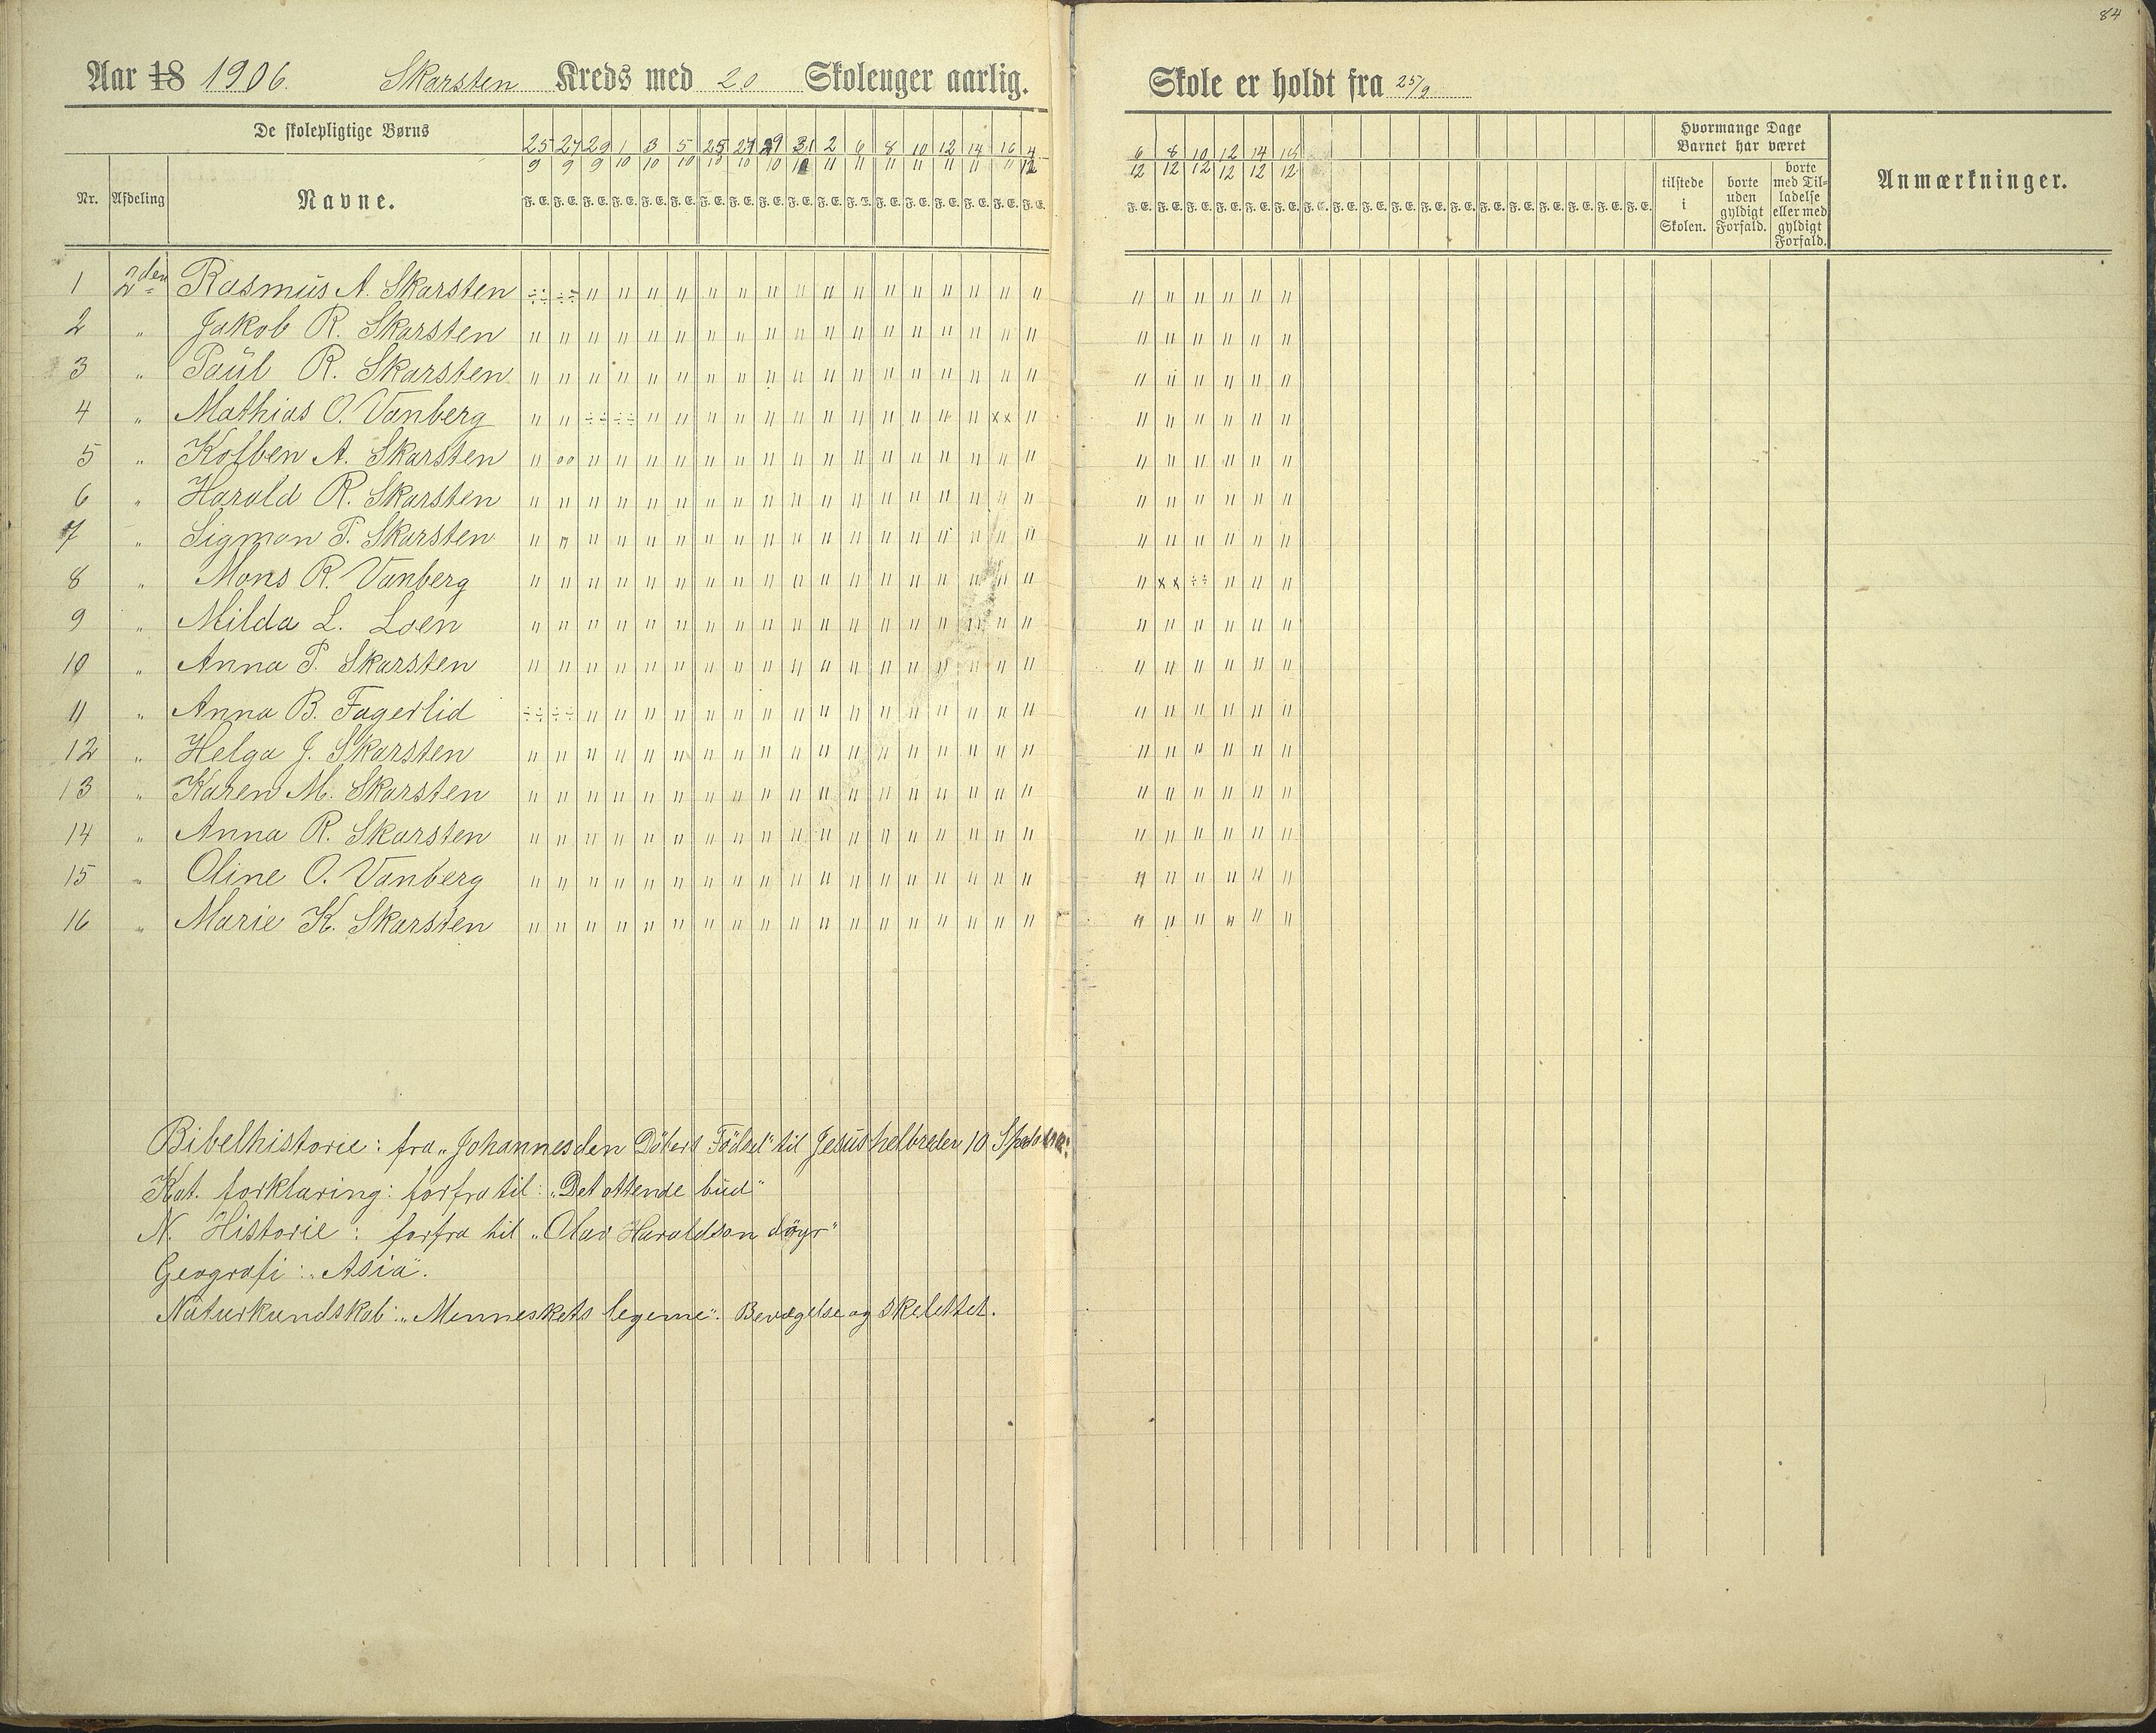 84
Aar 18 1906. Skarsten Kreds med 20 Skoleuger aarlig. Skole er holdt fra 25/9
De skolepligtige Børns
Hvormange Dage Barnet har været
25 27 29 1 3 5 25 27 29 31 2 6 8 10 12 14 16 4 6 8 10 12 14 18
9 9 9 10 10 10 10 10 10 10 11 11 11 11 11 11 11 12 12 12 12 12 12 12
Nr. Afdeling Navne. F. E. F. E. F. E. F. E. F. E. F. E. F. E. F. E. F. E. F. E. F. E. F. E. F. E. F. E. F. E. F. E. F. E. F. E.
F. E. F. E. F. E. F. E. F. E. F. E. F. E. F. E. F. E. F. E. F. E. F. E. F. E. F. E. F. E. F. E. F. E. F. E.
tilstede i Skolen.
borte uden gyldigt Forfald.
borte med Tilladelse eller med gyldigt Forfald.
Anmærkninger.
1 2den Rasmus A. Skarsten ÷÷ ÷÷ " " " " " " " " " " " " " " " " " " " " " "
2 " Jakob R. Skarsten " " " " " " " " " " " " " " " " " " " " " " " "
3 " Paul R. Skarsten " " " " " " " " " " " " " " " " " " " " " " " "
4 " Mathias O. Vanberg " " ÷÷ ÷÷ " " " " " " " " " " " " xx " " " " " " "
5 " Kolben A. Skarsten " oo " " " " " " " " " " " " " " " " " " " " " "
6 " Harald R. Skarsten " " " " " " " " " " " " " " " " " " " " " " " "
7 " Sigmon P. Skarsten " " " " " " " " " " " " " " " " " " " " " " " "
8 " Mons R. Vanberg " " " " " " " " " " " " " " " " " " " xx ÷÷ " " "
9 " Milda L. Loen " " " " " " " " " " " " " " " " " " " " " " " "
10 " Anna P. Skarsten " " " " " " " " " " " " " " " " " " " " " " " "
11 " Anna B. Fagerlid ÷÷ ÷÷ " " " " " " " " " " " " " " " " " " " " " "
12 " Helga J. Skarsten " " " " " " " " " " " " " " " " " " " " " " " "
13 " Karen M. Skarsten " " " " " " " " " " " " " " " " " " " " " " " "
14 " Anna R. Skarsten " " " " " " " " " " " " " " " " " " " " " " " "
15 " Oline O. Vanberg " " " " " " " " " " " " " " " " " " " " " " " "
16 " Marie K. Skarsten " " " " " " " " " " " " " " " " " " " " " " " "
Bibelhistorie: fra „Johannes den Döbers Födsel" til Jesus helbreder 10
Kat. forklaring: forfra til: „Det ottende bud"
N. Historie: forfra til „Olav Haraldson döyr"
Geografi: „Asia".
Naturkundskab: „Menneskets legeme". Bevægelse og skelettet.